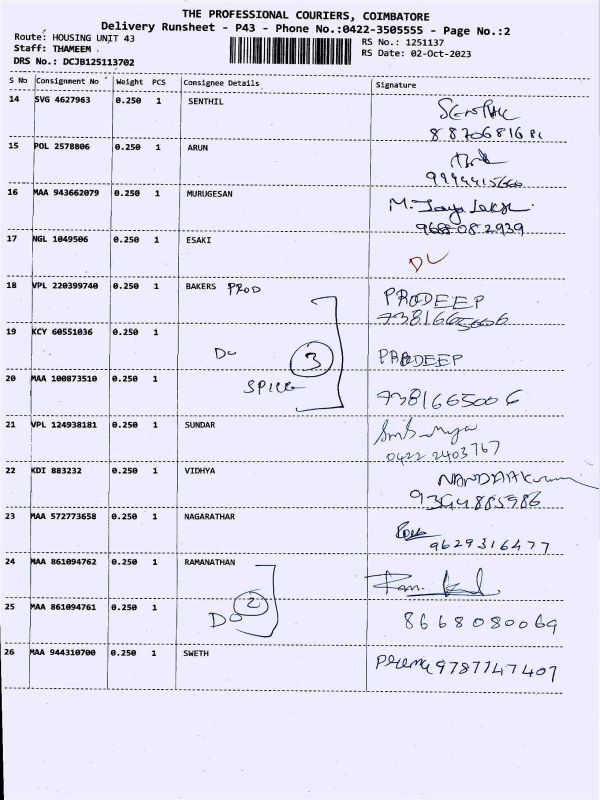 THE PROFESSIONAL COURIERS, COIMBATORE
Delivery Runsheet - P43 - Phone No.:0422-3505555 - Page No.:2
Route: HOUSING UNIT 43 RS No.: 1251137
Staff: THAMEEM RS Date: 02-Oct-2023
DRS No.: DCJB125113702
S No Consignment No Weight PCS Consignee Details Signature
14 SVG 4627963 0.250 1 SENTHIL
15 POL 2578806 0.250 1 ARUN
16 MAA 943662079 0.250 1 MURUGESAN M. Jaya
17 NGL 1049506 0.250 1 ESAKI DL
18 VPL 220399740 0.250 1 BAKERS PROD PRADEEP
19 KCY 60551036 0.250 1 Do 3 PRADEEP
20 MAA 100873510 0.250 1 7381665006
21 VPL 124938181 0.250 1 SUNDAR
0422 2403767
22 KDI 883232 0.250 1 VIDHYA
23 MAA 572773658 0.250 1 NAGARATHAR
9629316477
24 MAA 861094762 0.250 1 RAMANATHAN
25 MAA 861094761 0.250 1 Do 2 8668080069
26 MAA 944310700 0.250 1 SWETH 9787747407